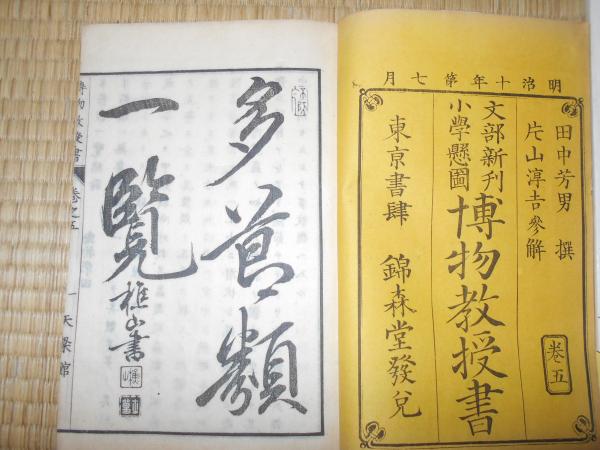 明治十年第七月
田中芳男 撰
片山淳吉參解
文部新刊
小學懸圖
博物教授書
卷五
東京書肆 錦森堂發兌
多節類
一覧
樵山書
博物教授書
卷之五
一
天梁館